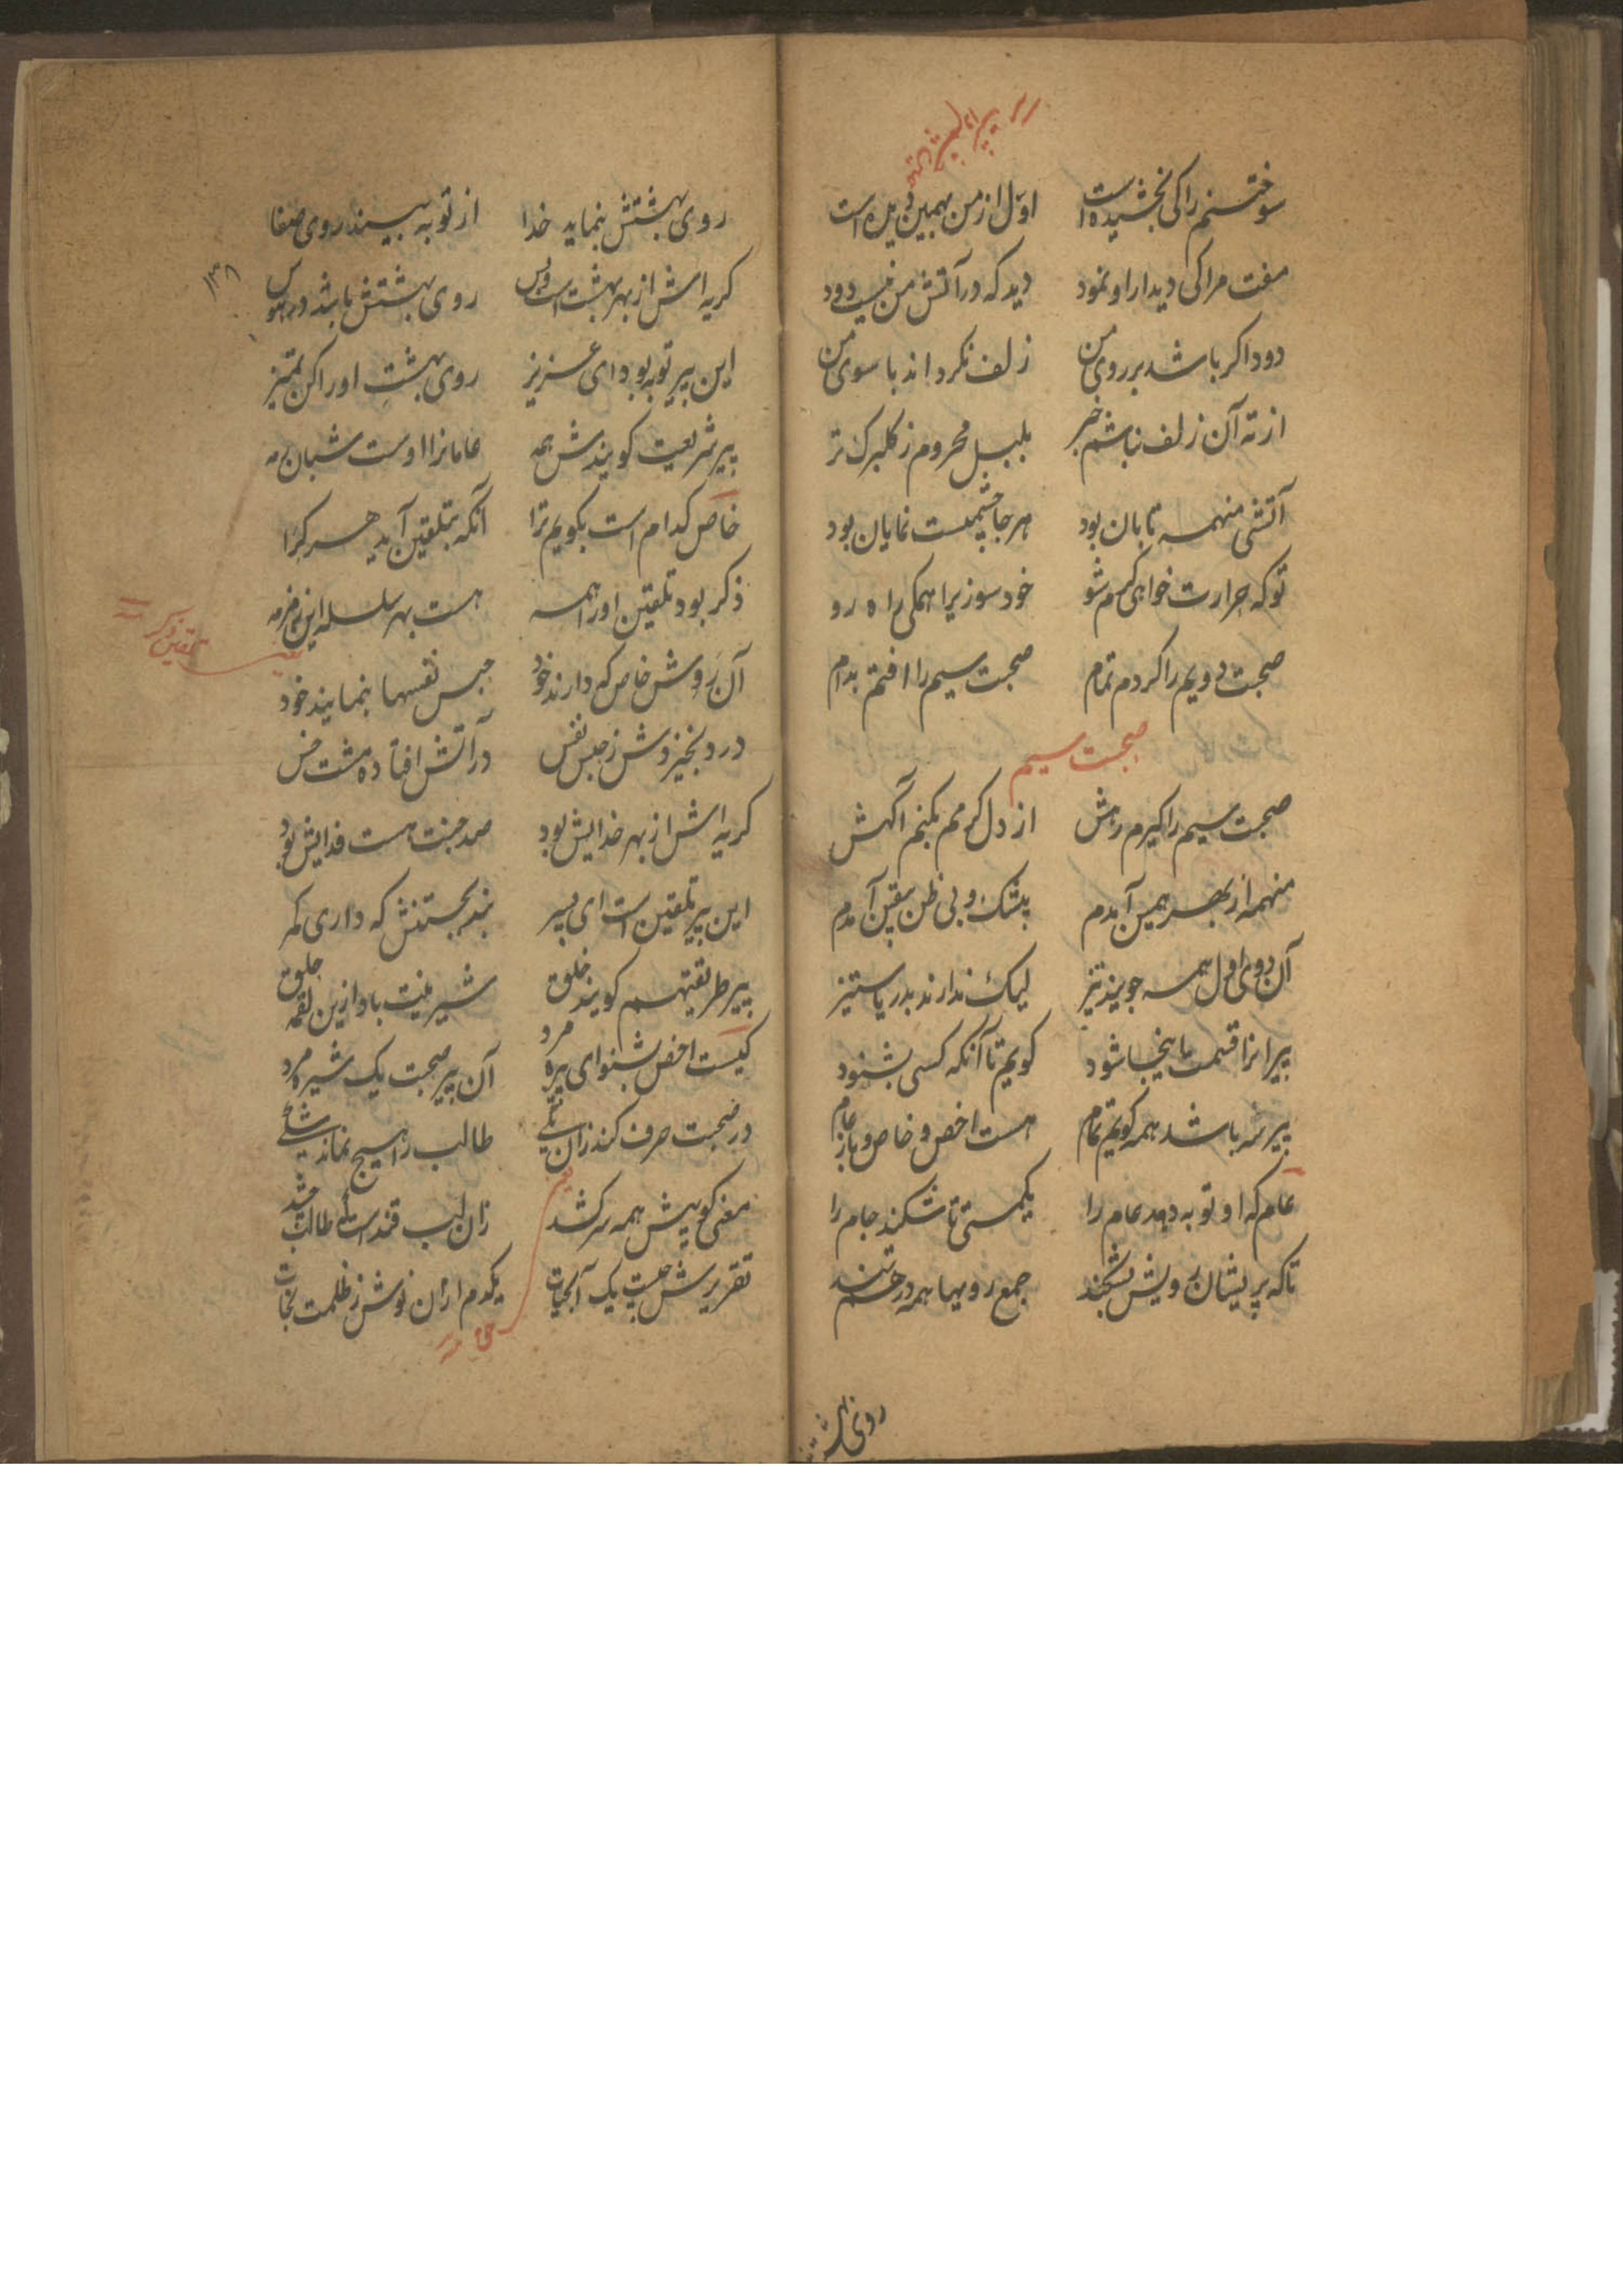 سوختنم را کی بخشیده است اول از من همین دیده است
مفت مرا کی دیدار او نمود دید که در آتش من نیست دود
دود اکر باشد بر روی من زلف نکرداند با سوی من
از ته آن زلف نباشم خبر بلبل محروم ز کلبرک تر
آتشی منهمه تابان بود هر جا چشمیست نمایان بود
تو که حرارت خواهی کم شو خود سوز برا همکی راه رو
صحبت دویم را کردم تمام صحبت سیم را افتم بدام
صحبت سیم
صحبت سیم را کیرم رهش از دل کرمم بکنم آکهش
منهمه از بهر همین آمدم بیشک و بی ظن بیقین آمدم
آن دوی اول همه جویند تیز لیک ندارند بدریا ستیز
پیرانرا قسمت باینجا شود کویم تا آنکه کسی بشنود
پیر سه باشد همه کویم تمام هست اخص و خاص و باز عام
عام که او توبه دهد عام را یکمستی تا شکند جام را
تا که پریشان رویش بشکند جمع رویها همه در هم تند
روی بهشتش
روی بهشتش بنماید خدا از توبه بیند روی صفا
کریه اش از بهر بهشت است و بس روی بهشتش باشد در هوس
این پیر توبه بود ای عزیز روی بهشت او را کن تمیز
پیر شریعت کویندش همه عامانرا اوست شبان رمه
خاص کدام است بکویم ترا آنکه بتلقین آید هر کرا
ذکر بود تلقین او را همه هست بهر سلسله این زمزمه
تلقین ذکر
آن روش خاص که دارند خود حبس نفسها بنمایند خود
دود بخیزدش ز حبس نفس در آتش افتاده مشت خس
کریه اش از بهر خدایش بود صد جنت هست فدایش بود
این پیر تلقین است ای پسر بند بجستنش که داری کمر
پیر طریقتهم کویند خلق شیرینت باد ازین لقمه حلق
کیست اخص بشنو ای پیره مرد آن پیر صحبت یک شیره مرد
در صحبت صرف کند زان یکی طالب را هیچ نماند شکی
معنی کو پیش همه سر کشد زان لب قند است طالب چشد
تقریرش چیست یک آبحیات یکدم از آن نوش ز ظلمت نجات